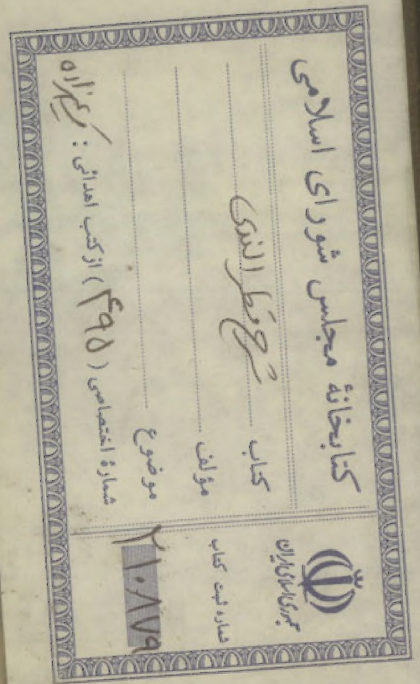 کتابخانهٔ مجلس شورای اسلامی
کتاب شرح قطر الندی
مؤلف
موضوع
شمارهٔ اختصاصی ( ۴۹۵ ) از کتب اهدائی :
جمهوری اسلامی ایران
شماره ثبت کتاب
۲۱۰۸۷۹